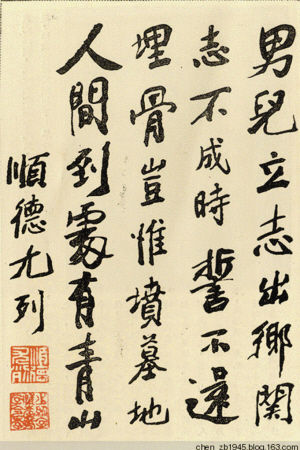 男兒立志出鄉關
志不成時誓不還
埋骨豈惟墳墓地
人間到處有青山
順德尤列
chen_zb1945.blog.163.com